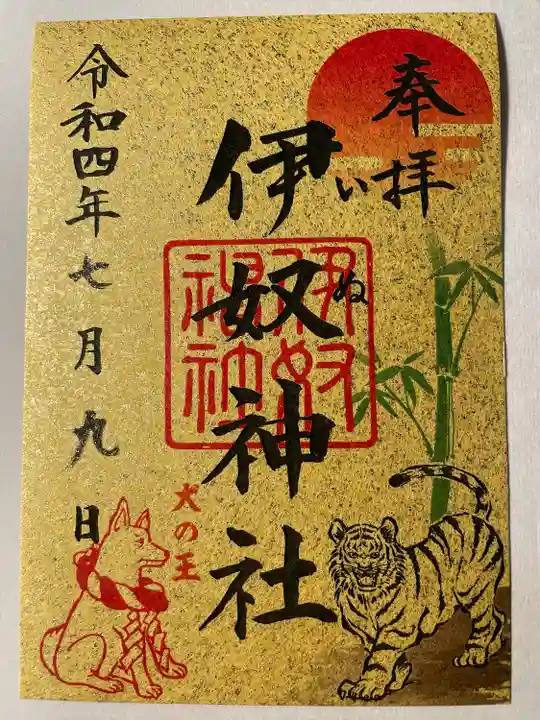 奉拝
伊奴神社
いぬ
伊奴神社
犬の王
令和四年七月九日